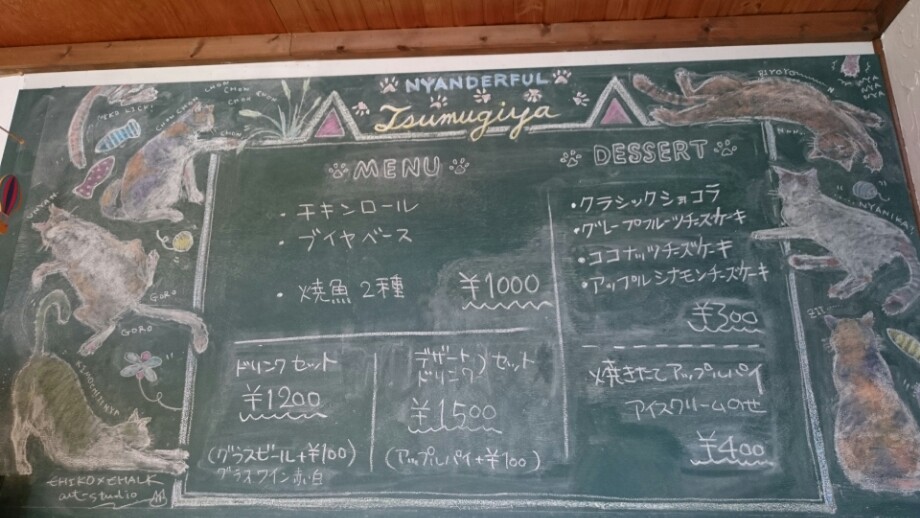 NYANDERFUL
Tsumugiya
MENU
・チキンロール
・ブイヤベース
・焼魚 2種 ¥1000
ドリンクセット
¥1200
(グラスビール+¥100)
グラスワイン 赤白
デザート
ドリンク ) セット
¥1500
(アップルパイ+¥100)
DESSERT
・クラシックショコラ
・グレープフルーツチーズケーキ
・ココナッツチーズケーキ
・アップルシナモンチーズケーキ
¥300
焼きたてアップルパイ
アイスクリームのせ
¥400
CHON CHON
CHON CHON CHON
GORO
GORO
NYA
NYA
NYA
ZZZ
CHIKO×CHALK
art-studio